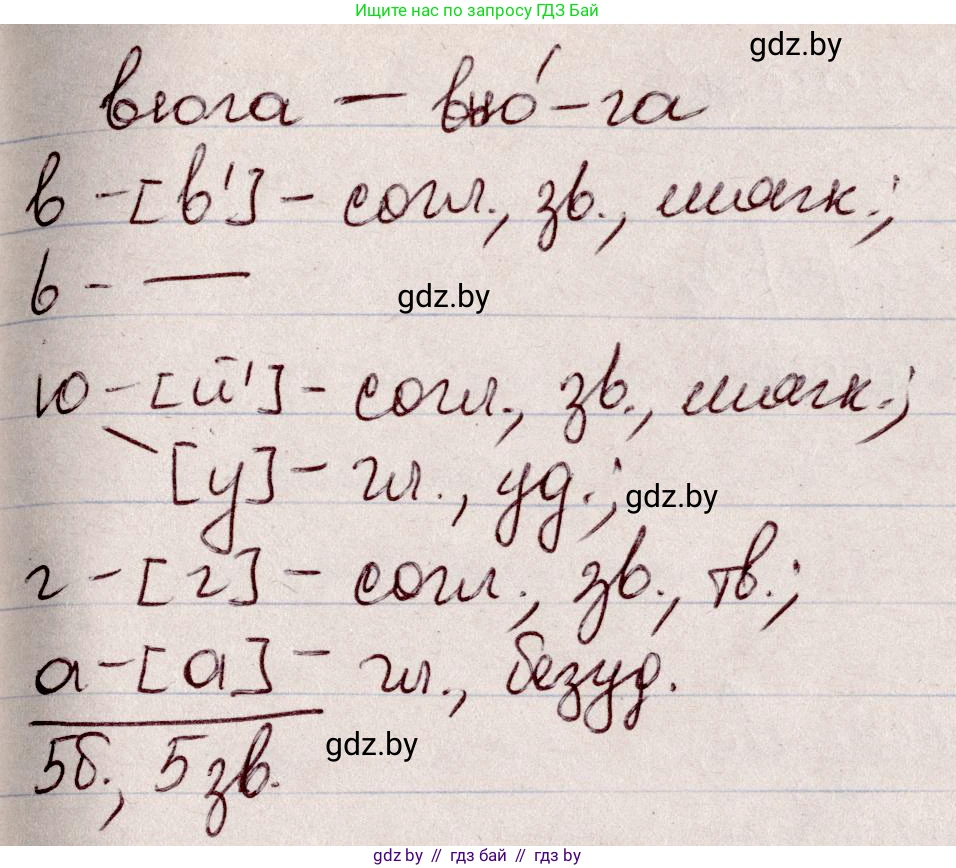 Ищите нас по запросу ГДЗ Бай
gdz.by
вьюга — вью́-га
в - [в'] - согл., зв., мягк.;
ь - —
gdz.by
ю - [й'] - согл., зв., мягк.;
[у] - гл., уд.;
gdz.by
г - [г] - согл., зв., тв.;
а - [а] - гл., безуд.
5б., 5 зв.
gdz.by
gdz.by // гдз бай // gdz.by